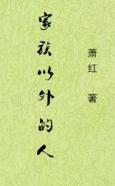 家族以外的人
萧红 著